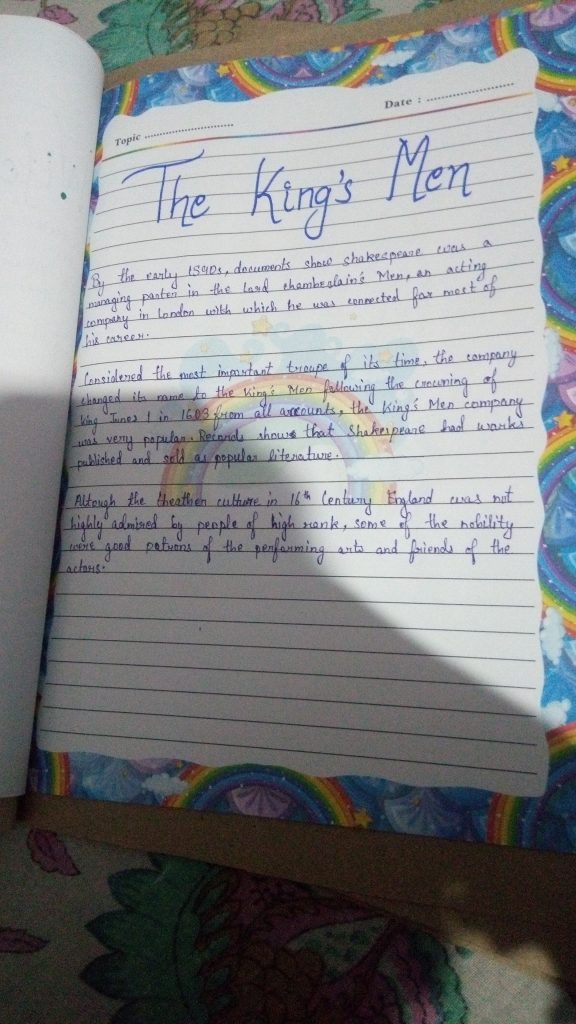 Topic ..............................
Date : ..............................
The King's Men
By the early 1590s, documents show Shakespeare was a
managing pasten in the Lord chamberlain's Men, an acting
company in London with which he was connected for most of
his career.
Considered the most important troupe of its time, the company
changed its name to the King's Men following the crowning of
King James 1 in 1603 from all accounts, the King's Men company
was very popular. Records shows that Shakespeare had works
published and sold as popular literature.
Altough the theather culture in 16th Century England was not
highly admired by people of high rank, some of the nobility
were good patrons of the performing arts and friends of the
actors.